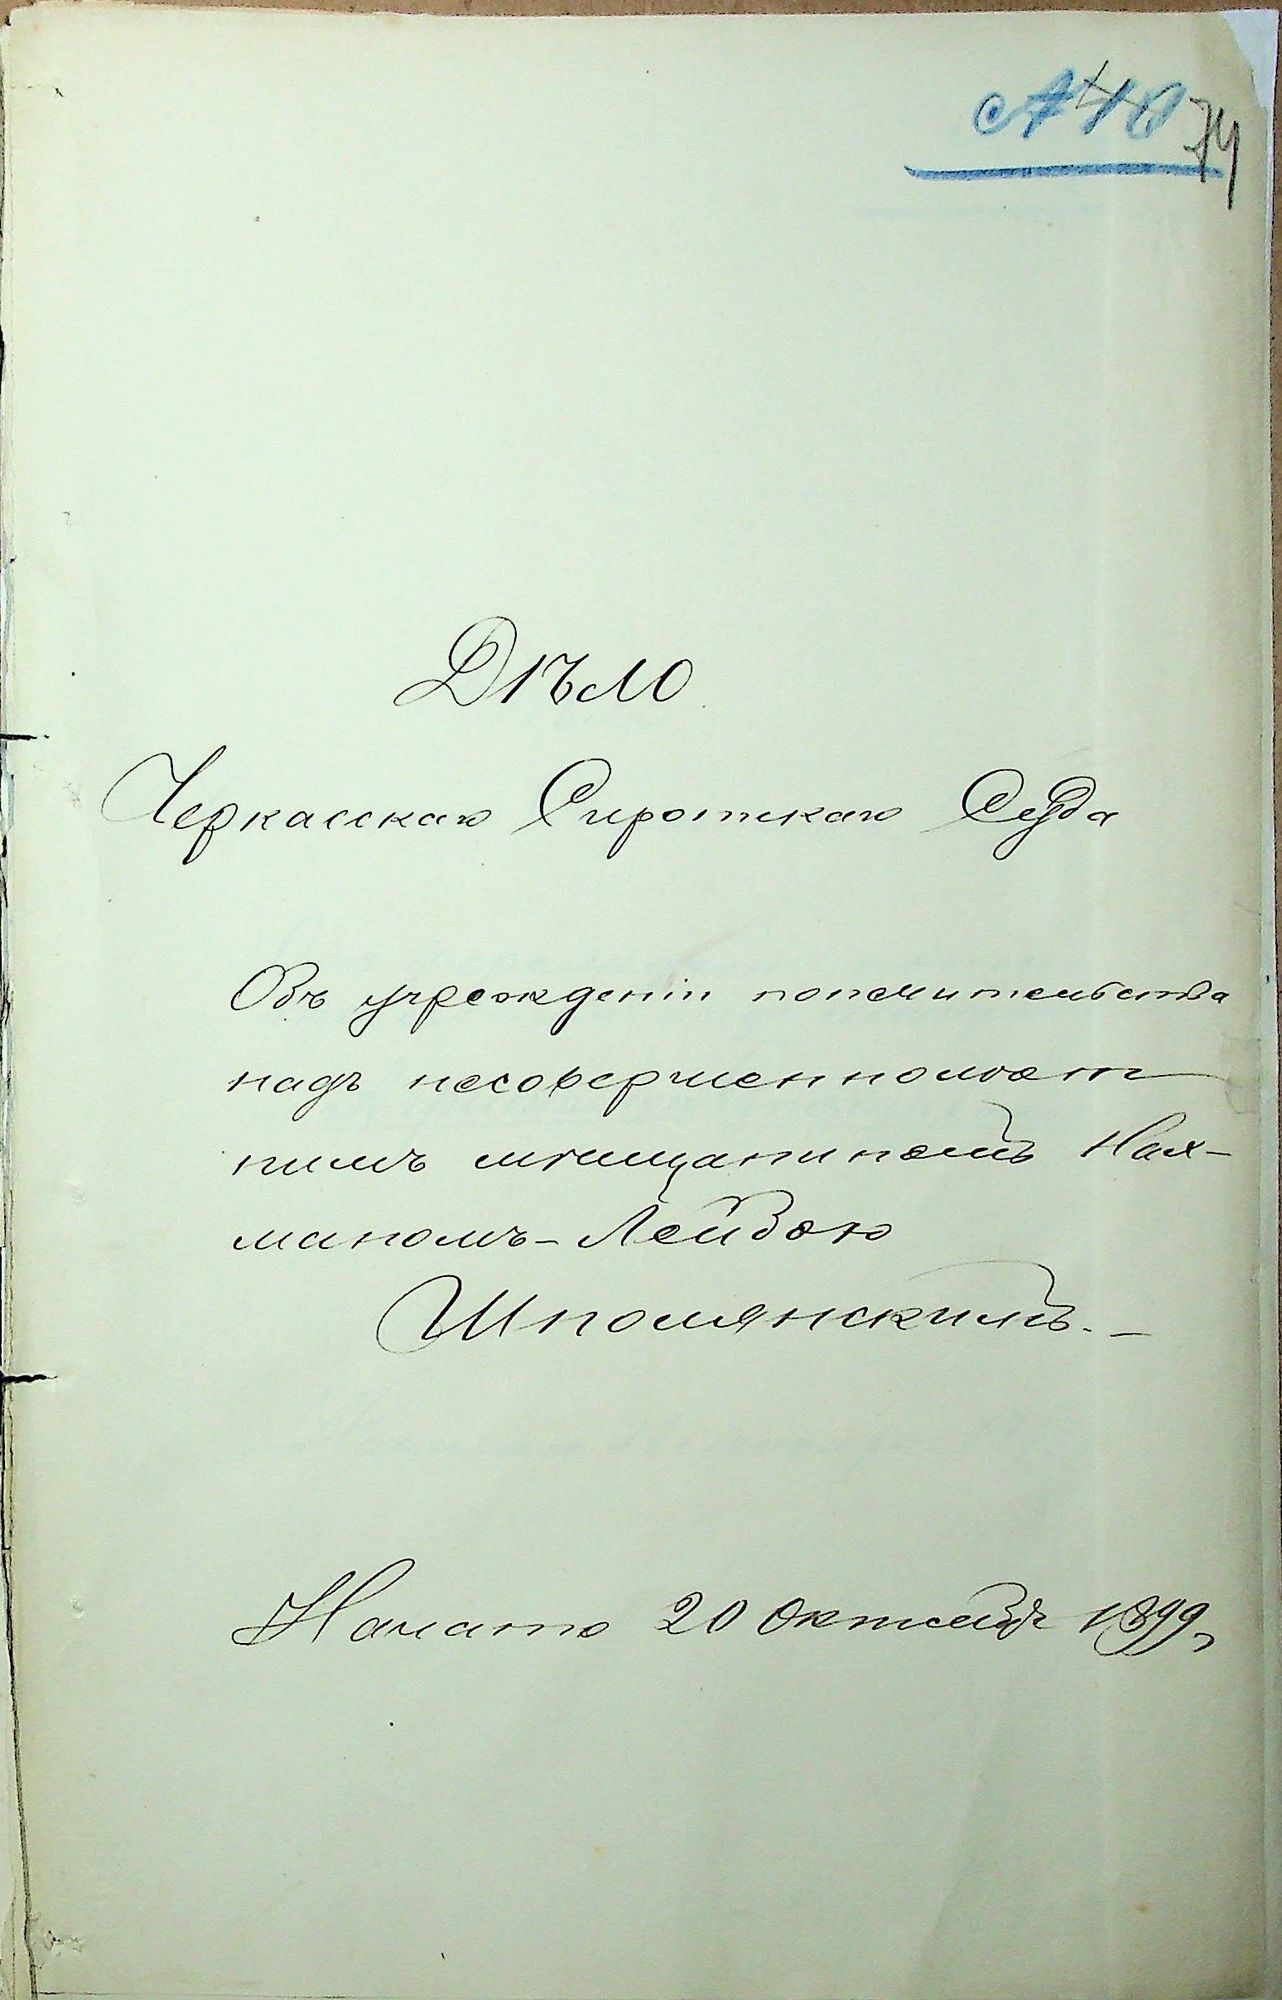 № 40
74
Дѣло
Черкасскаго Сиротскаго Суда
Объ учрежденіи попечительства
надъ несовершеннолѣт
нимъ мѣщаниномъ Нах-
маномъ-Лейбою
Шполянскимъ. –
Начато 20 Октября 1899 г.